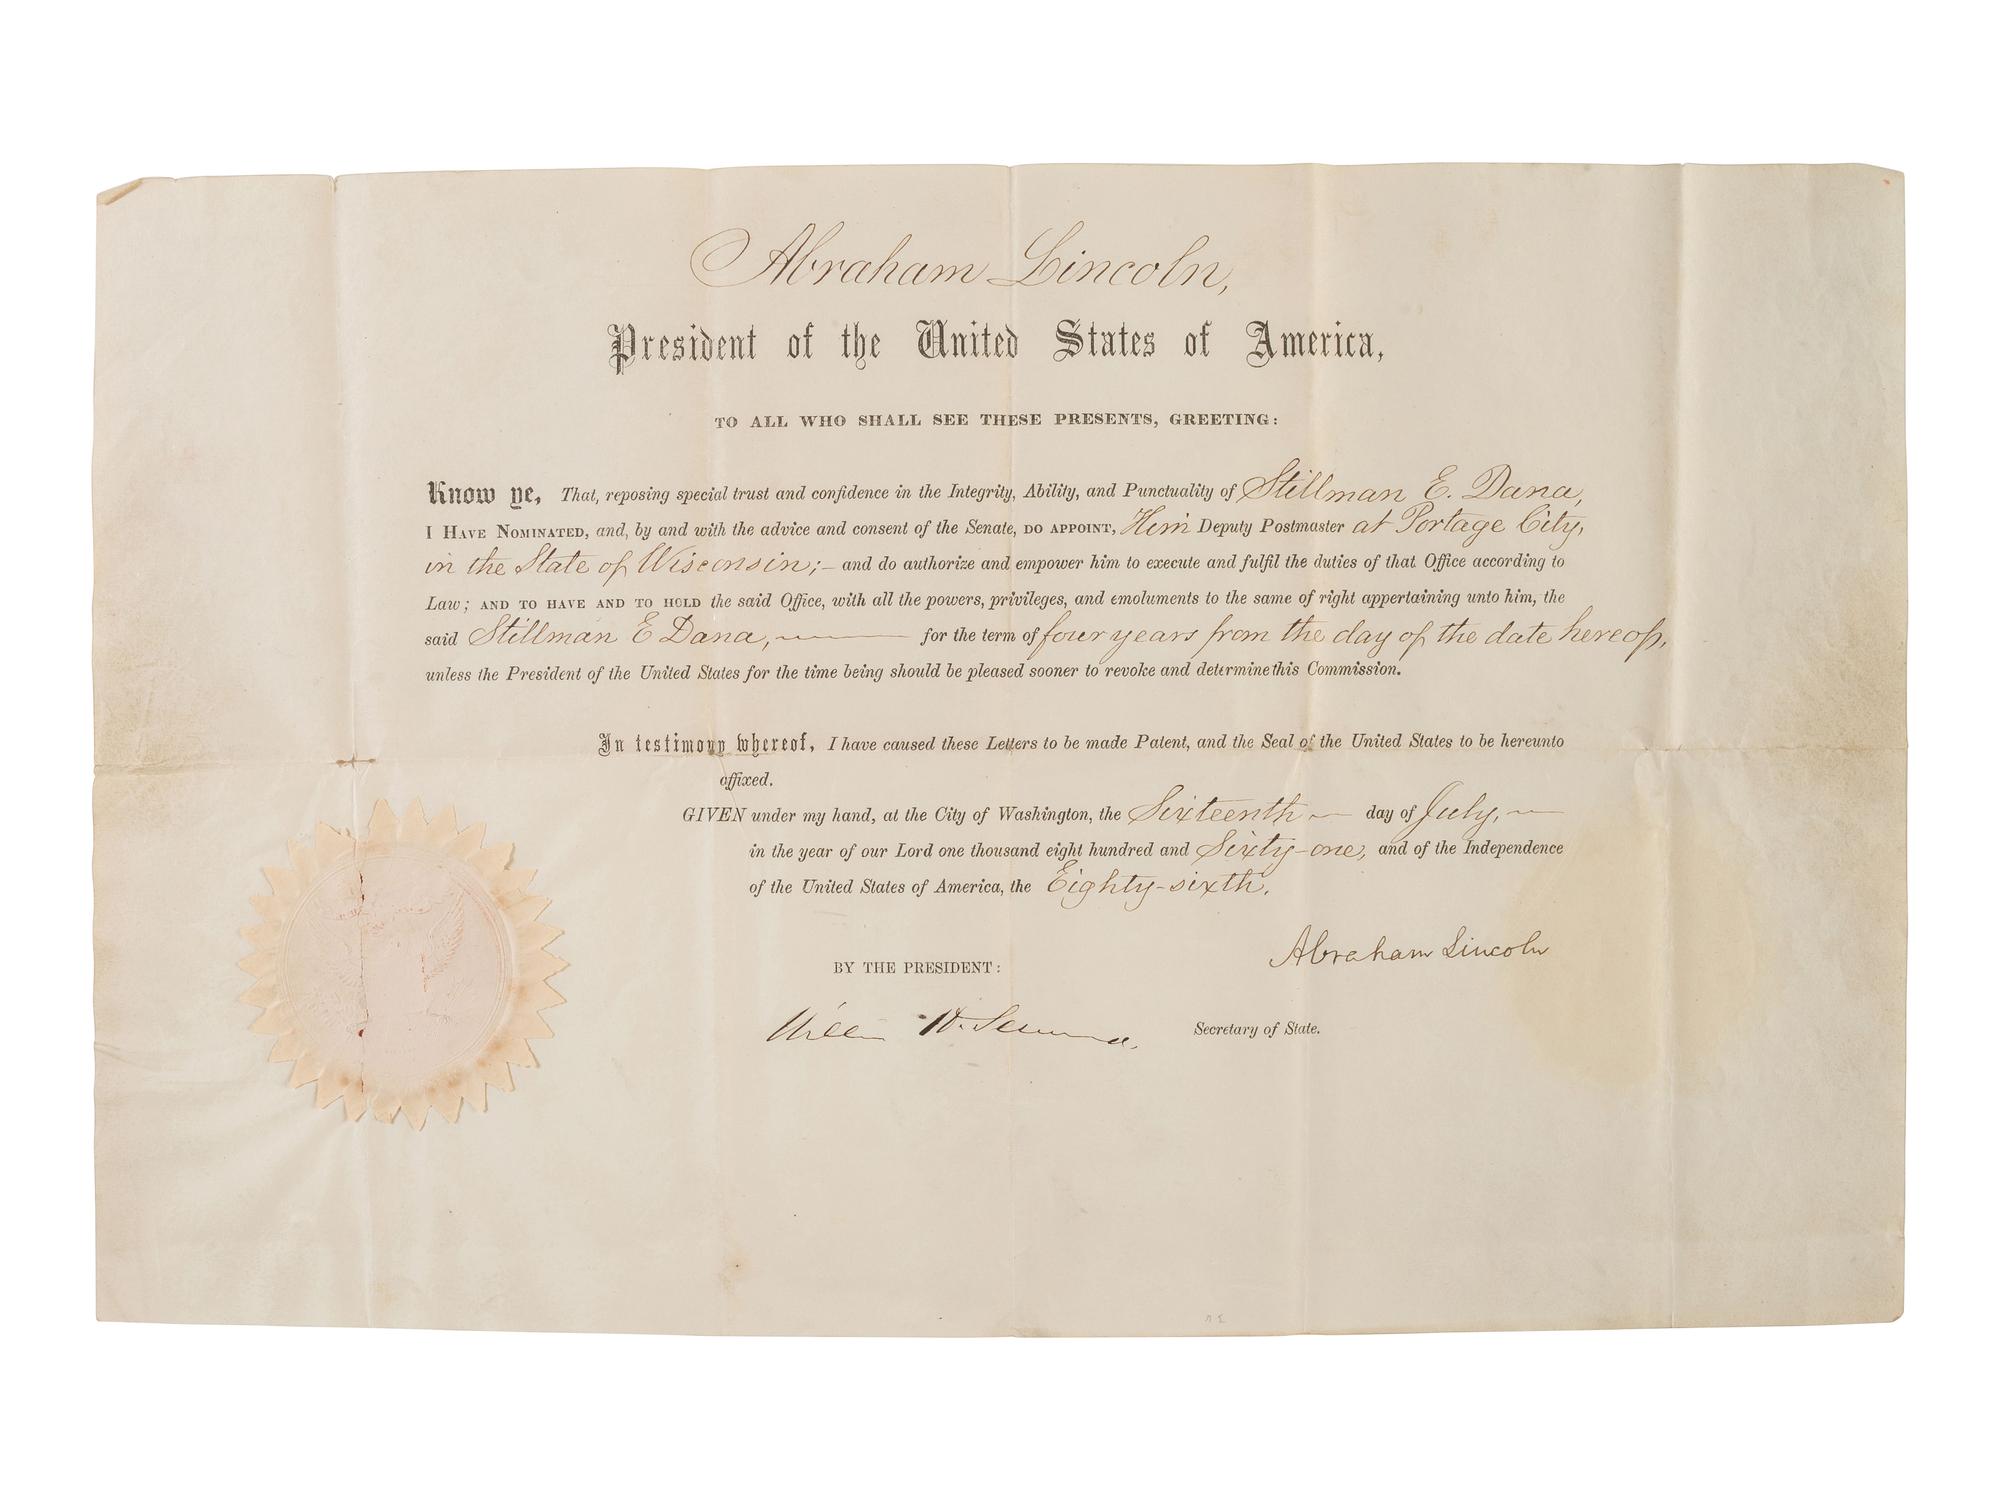 Abraham Lincoln,
President of the United States of America,
TO ALL WHO SHALL SEE THESE PRESENTS, GREETING:
Know ye, That, reposing special trust and confidence in the Integrity, Ability, and Punctuality of Stillman E. Dana,
I HAVE NOMINATED, and, by and with the advice and consent of the Senate, DO APPOINT, Him Deputy Postmaster at Portage City,
in the State of Wisconsin;— and do authorize and empower him to execute and fulfil the duties of that Office according to
Law; AND TO HAVE AND TO HOLD the said Office, with all the powers, privileges, and emoluments to the same of right appertaining unto him, the
said Stillman E Dana, —— for the term of four years from the day of the date hereof,
unless the President of the United States for the time being should be pleased sooner to revoke and determine this Commission.
In testimony whereof, I have caused these Letters to be made Patent, and the Seal of the United States to be hereunto
affixed.
GIVEN under my hand, at the City of Washington, the Sixteenth — day of July, —
in the year of our Lord one thousand eight hundred and Sixty-one, and of the Independence
of the United States of America, the Eighty-sixth.
Abraham Lincoln
BY THE PRESIDENT:
William H. Seward. Secretary of State.